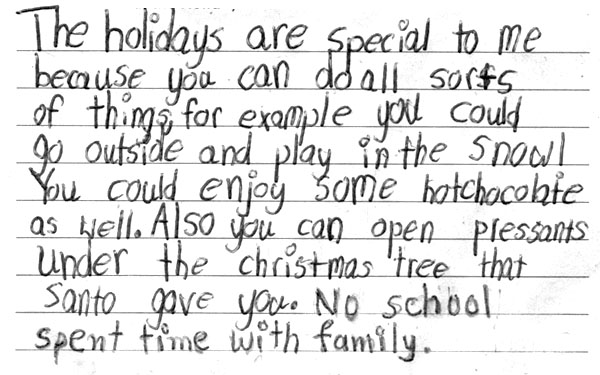 The holidays are special to me
because you can do all sorts
of things, for example you could
go outside and play in the snow!
You could enjoy some hotchocolate
as well. Also you can open pressants
under the christmas tree that
Santa gave you. No school
spent time with family.